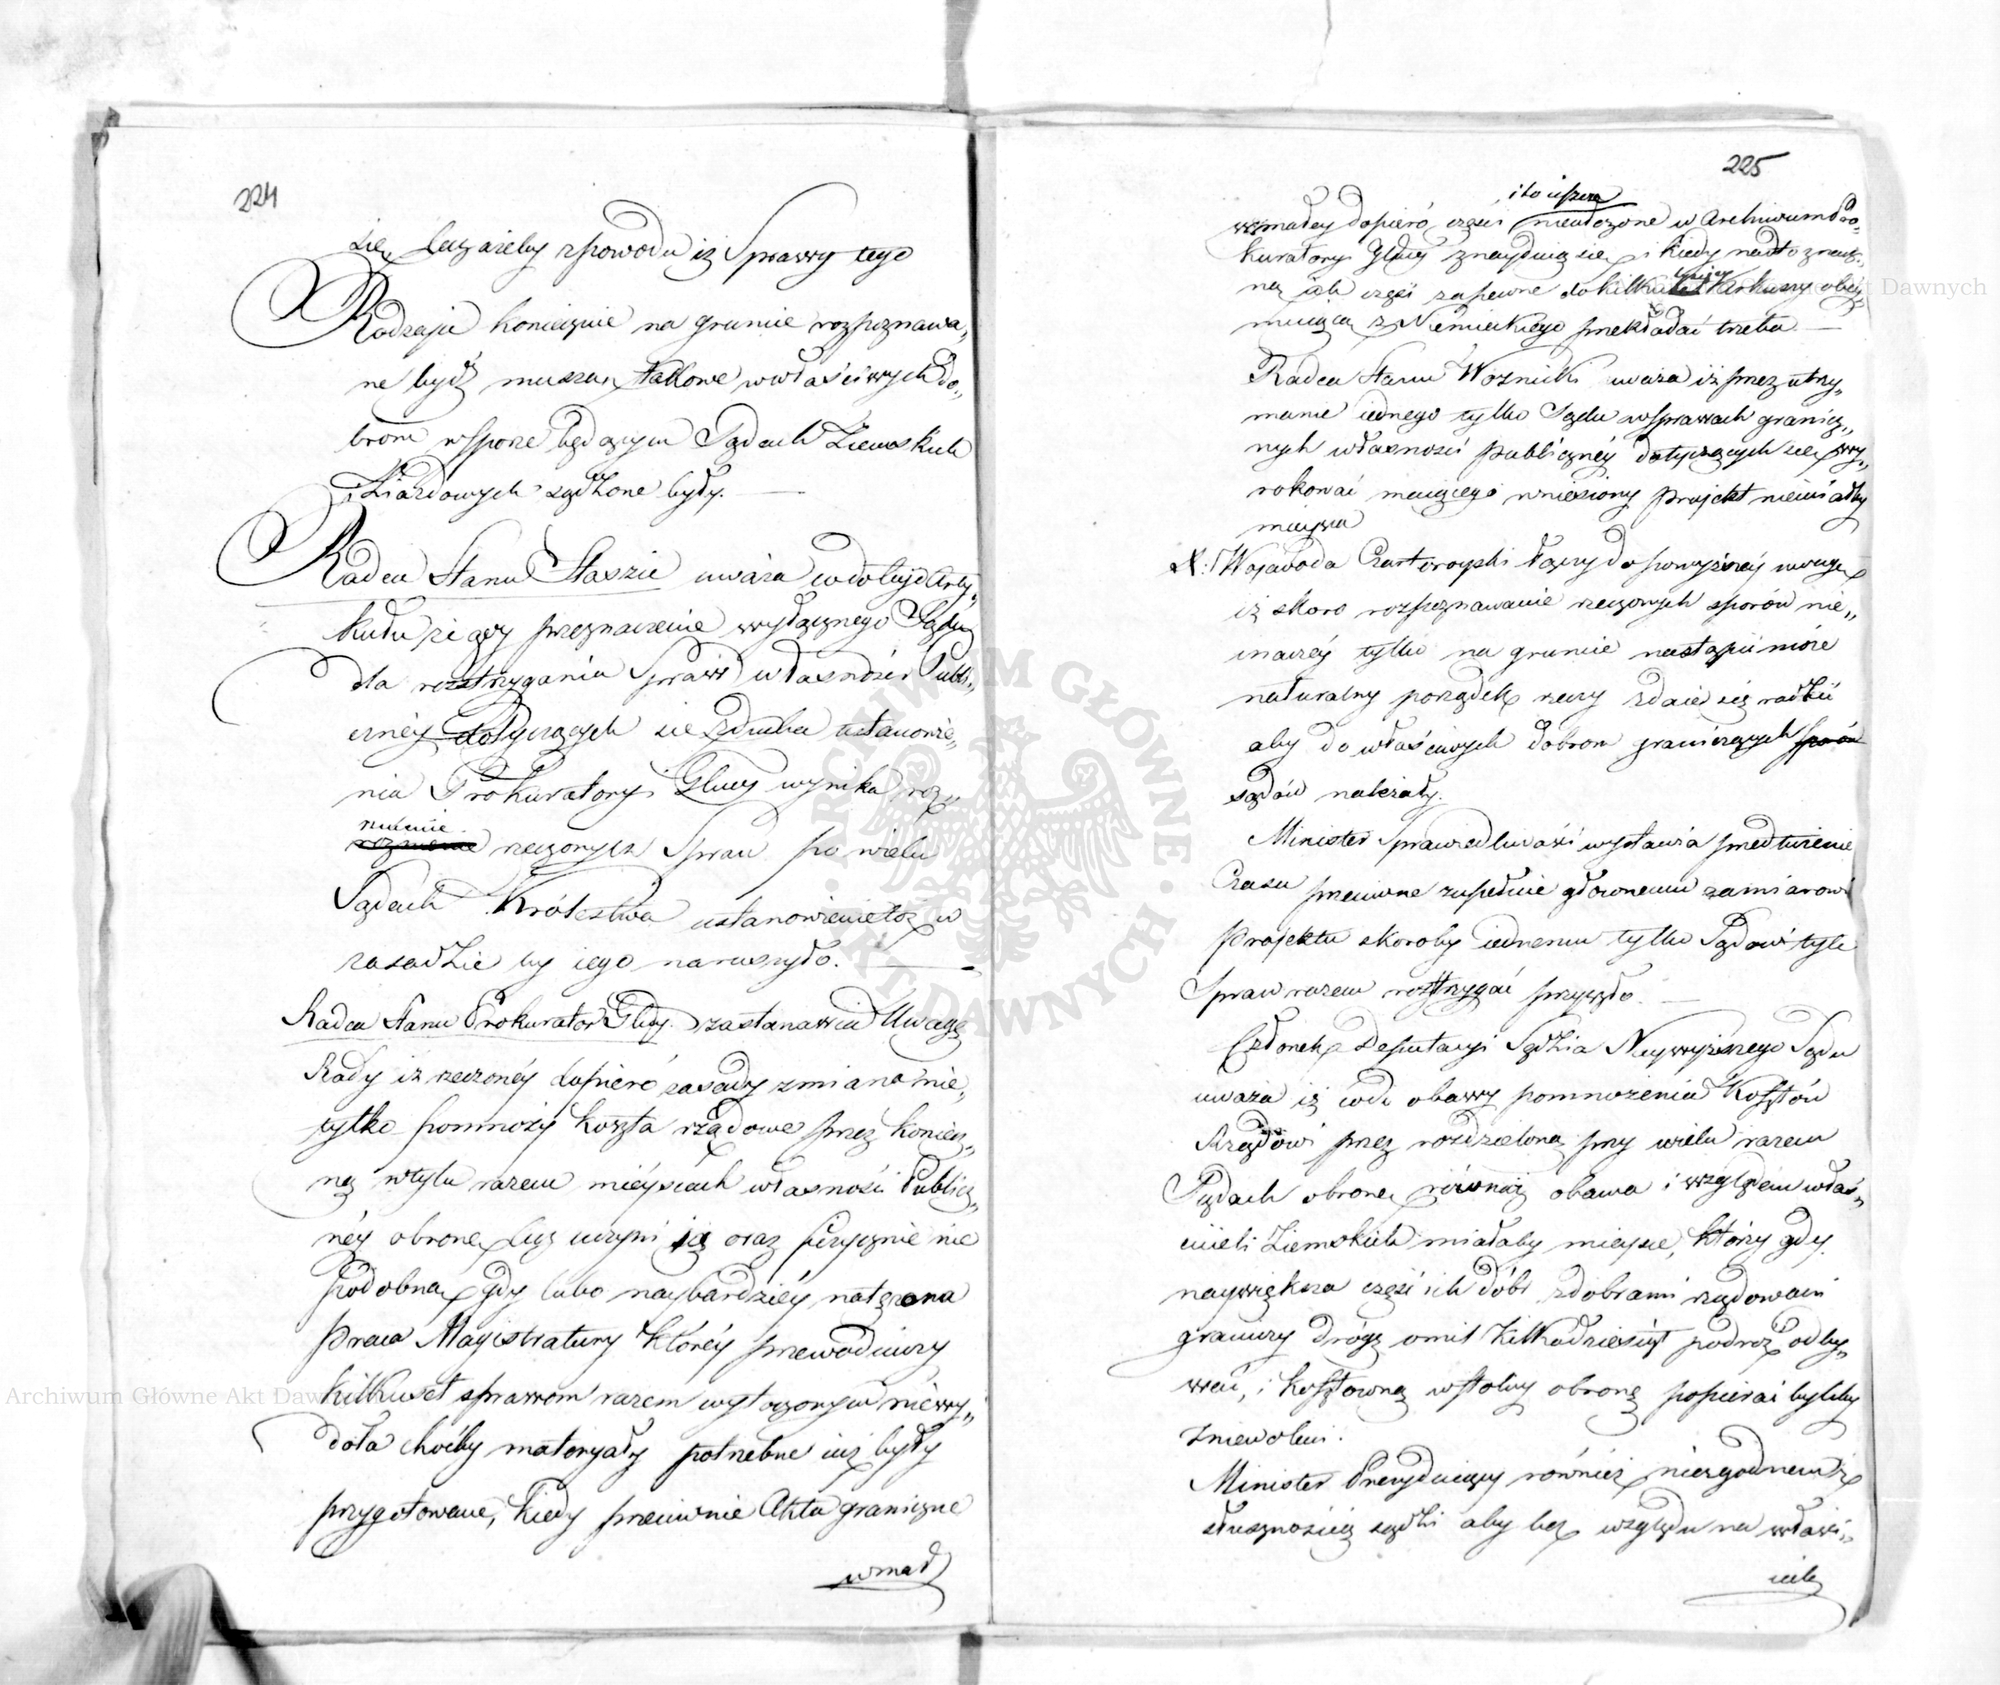 224
się, lecz ażeby z powodu iż Sprawy tego
Rodzaju koniecznie na gruncie rozpoznawa„
ne bydź muszą, takowe w właściwych do„
brom w sporze będącym Sądach Ziemskich
i Ziazdowych sądzone były. —
Radca Stanu Staszic uważa co do tyt: Arty„
kułu iż gdy przeznaczenie wyłącznego Sądu
dla rozstrzygania Spraw własności Publi„
cznéy dotyczących się z ducha ustanowie„
nia Prokuratoryi Głney wynika, roz„
rzucenie
rzeczonych Spraw po wielu
Sądach Królestwa ustanowienie toż w
zasadzie by iego naruszyło. —
Radca Stanu Prokurator Głny. zastanawia Uwagę
Rady iż rzeczonéy dopiéro zasady zmiana nie„
tylko pomnoży koszta rządowe przez koniecz„
ną w tylu razem mieyscach własności Publicz„
néy obronę, lecz uczyni ią oraz fizycznie nie
podobną, gdy lubo naybardziéy natężona
praca Magistratury któréy przewodniczy
kilkuset sprawom razem wytoczonym nie wy„
doła choćby materyały potrzebne iuż były
przygotowane, kiedy przeciwnie Akta graniczne
w mał
225
i to ieszcze
w małey dopiéro części nieułożone w Archiwum Pro„
kuratoryi Głney znayduią się, i kiedy nadto znacz„
ną ich część zapewne do kilku tysięcy Arkuszy obéy„
muiącą z Niemieckiego przekładać trzeba. —
Radca Stanu Woznicki uważa iż przez utrzy„
manie iednego tylko Sądu w sprawach granicz„
nych własności Publicznéy dotyczących się wy„
rokować maiącego wniesiony Projekt niemiałby
mieysca
X: Wojewoda Czartoryski łączy do powyższéy uwagę
iż skoro rozpoznawanie rzeczonych sporów nie„
inaczéy tylko na gruncie nastąpić może
naturalny porządek rzeczy zdaie się radzić
aby do właściwych dobrom graniczących
sądów należały.
Minister Sprawiedliwości wystawia przedłużenie
Czasu przeciwne zupełnie głównemu zamiarowi
Projektu skoroby iednemu tylko Sądowi tyle
Spraw razem rozstrzygać przyszło. —
Członek Deputacyi Sędzia Naywyższego Sądu
uważa iż co do obawy pomnożenia Kosztów
Rządowi przez rozdzieloną przy wielu razem
Sądach obronę, równaż obawa i względem właś„
cicieli Ziemskich miałaby mieysce, którzy gdy
naywiększa część ich dóbr z dobrami rządowemi
graniczy drogę o mil kilkadziesiąt podróż odby„
wać, i kosztowną w stolicy obronę popierać byliby
zniewoleni.
Minister Prezyduiący również niezgodnem iż
słusznością sądzi aby bez względu na właści„
ciela
Archiwum Główne Akt Dawnych
ARCHIWUM GŁÓWNE AKT DAWNYCH